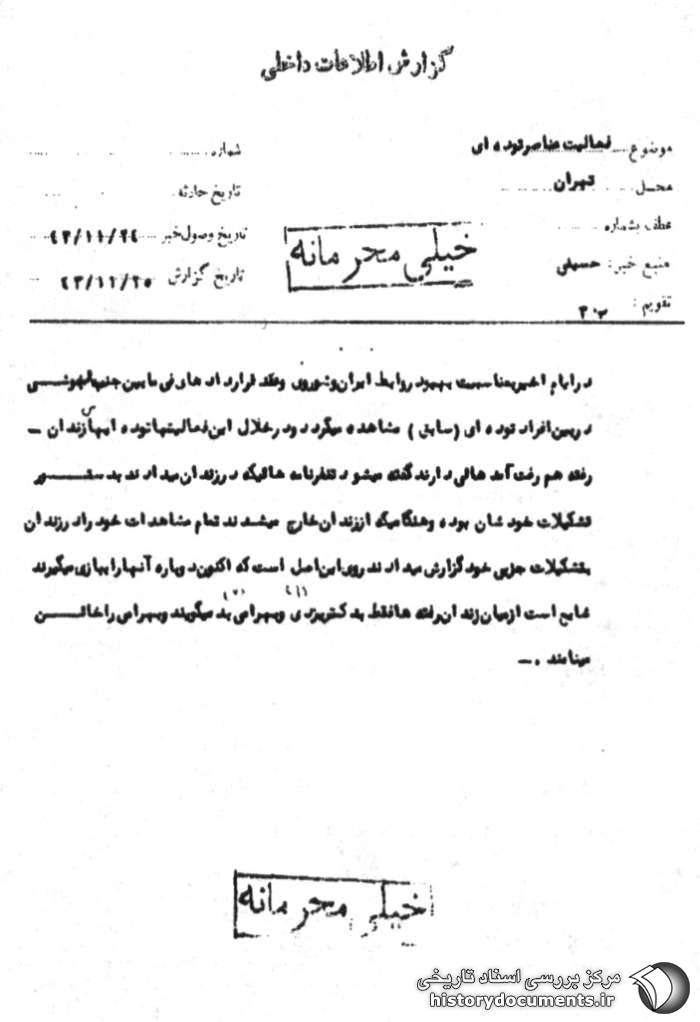 گزارش اطلاعات داخلی
موضوع فعالیت عناصر توده ای
محل تهران
عطف بشماره
منبع خبر: حسینی
تقویم: ب-۳
شماره
تاریخ حادثه
تاریخ وصول خبر ۴۳/۱۱/۲۴
تاریخ گزارش ۴۳/۱۱/۲۵
خیلی محرمانه
در ایام اخیر بمناسبت بهبود روابط ایران و شوروی و عقد قراردادهای فی مابین جنب و جوشی
در بین افراد توده ای (سابق) مشاهده میگردد در خلال این فعالیتها توده ایهای زندان -
رفته هم رفت آمد هائی دارند گفته میشود تنفرنامه هائیکه در زندان میدادند بدستور
تشکیلات خودشان بوده و هنگامیکه از زندان خارج میشدند تمام مشاهدات خود را در زندان
بتشکیلات حزبی خود گزارش میدادند روی این اصل است که اکنون دوباره آنها را ببازی میگیرند
شایع است از میان زندان رفته ها فقط بدکتر یزدی (۱) و بهرامی (۲) بد میگویند و بهرامی را خائن
مینامند .-
خیلی محرمانه
مرکز بررسی اسناد تاریخی
historydocuments.ir